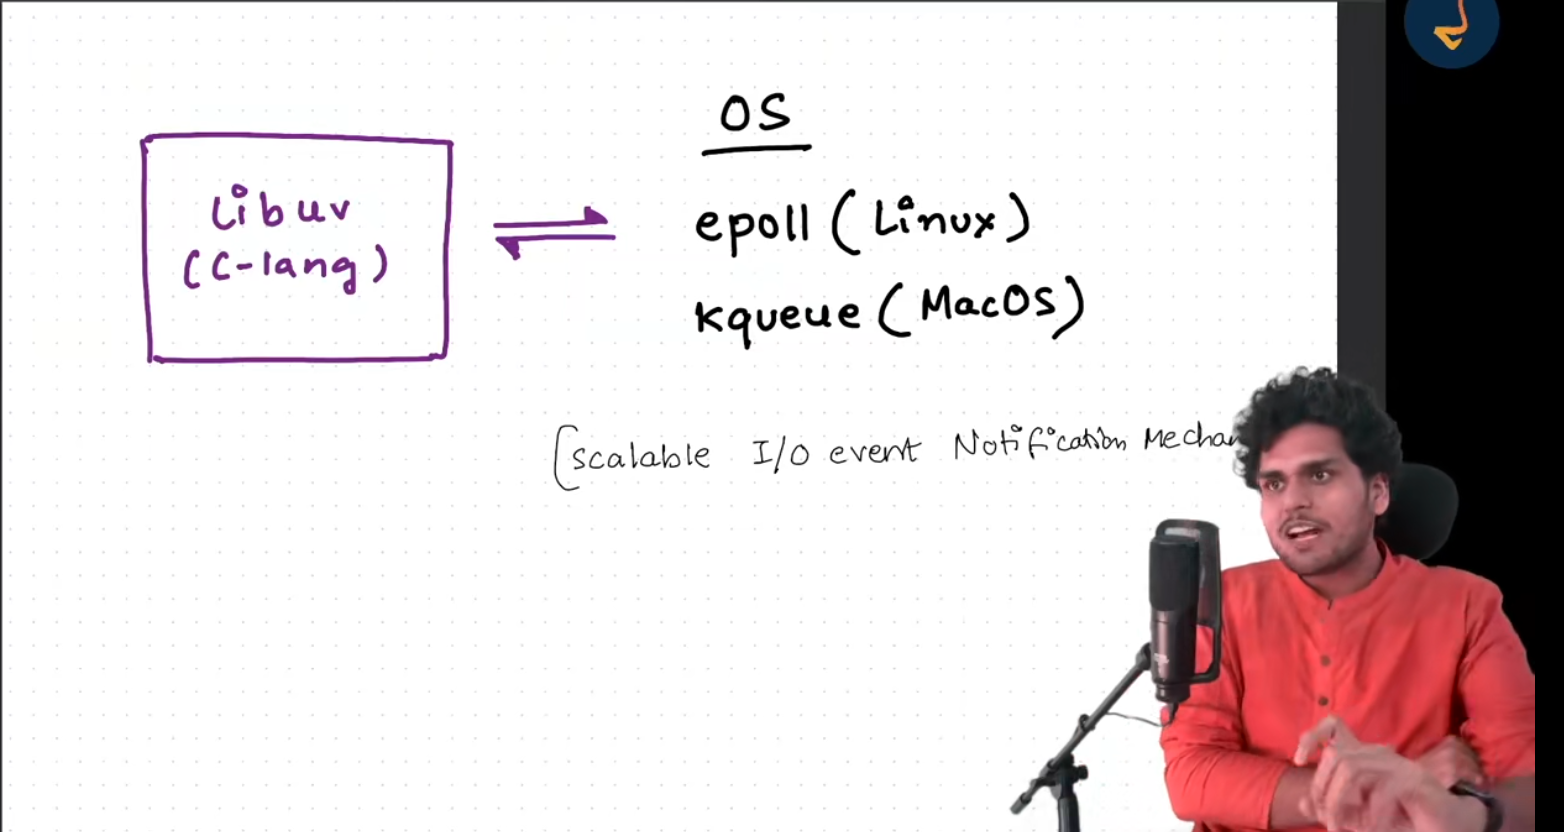 OS
Libuv
(C-lang)
epoll (Linux)
Kqueue (MacOS)
[scalable I/O event Notification Mechan